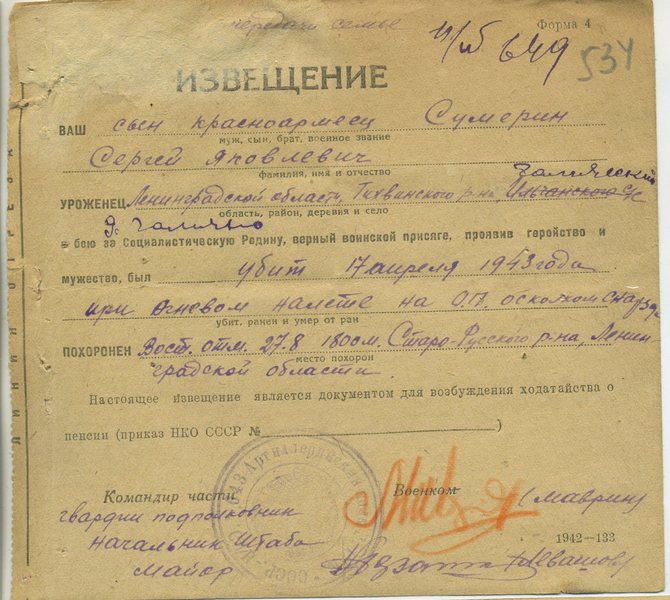 передачи семье
Форма 4
н/№ 649
534
ИЗВЕЩЕНИЕ
ВАШ сын красноармеец Сумерин
муж, сын, брат, военное звание
Сергей Яковлевич
фамилия, имя и отчество
Галичский
УРОЖЕНЕЦ Ленинградской области, Тихвинского р-на, с/с
область, район, деревня и село
д. Галично
в бою за Социалистическую Родину, верный воинской присяге, проявив геройство и
мужество, был убит 17 апреля 1943 года
при огневом налете на О.П. осколком снаряда
убит, ранен и умер от ран
ПОХОРОНЕН Вост. отм. 27.8 1800 м. Старо-Русского р-на, Ленин
место похорон
градской области.
Настоящее извещение является документом для возбуждения ходатайства о
пенсии (приказ НКО СССР № )
Артиллерийский
СССР
ЛИНИЯ ОТРЕЗА
Командир части Военком
гвардии подполковник (Маврин)
1942—133
Начальник Штаба
Майор Левашов